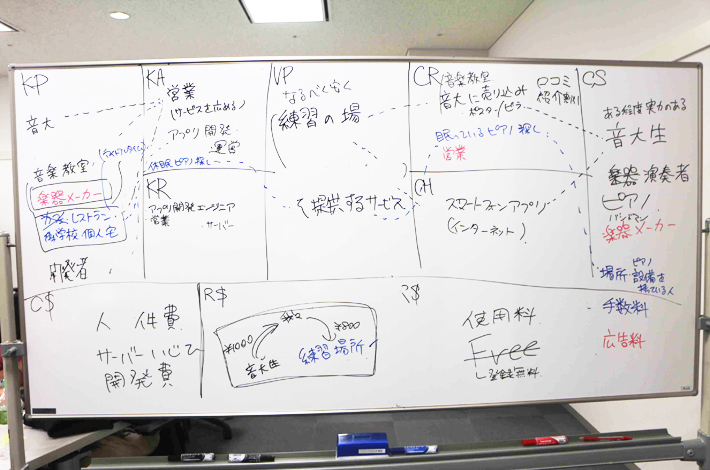 KP
音大
音楽教室
楽器メーカー
カフェ レストラン
学校 個人宅
開発者
KA
営業
(サービスを広める)
アプリ開発
運営
休眠ピアノ探し
KR
アプリ開発エンジニア
営業
サーバー
VP
なるべく安く
練習の場
を提供するサービス
CR
音楽教室
音大に売り込み
ポスター/ビラ
口コミ
紹介割
眠っているピアノ探し
営業
CH
スマートフォンアプリ
(インターネット)
CS
ある程度実力のある
音大生
楽器演奏者
ピアノ
バンドマン
楽器メーカー
場所
ピアノ
設備を
持っている人
C$
人件費
サーバーいじひ
開発費
R$
¥1000
¥800
音大生
練習場所
R$
使用料
Free
登録無料
手数料
広告料